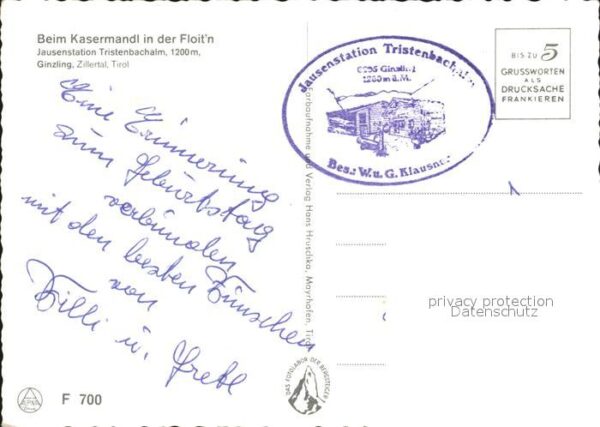 Beim Kasermandl in der Floit'n
Jausenstation Tristenbachalm, 1200 m,
Ginzling, Zillertal, Tirol
Eine Erinnerung
zum Geburtstag
verbunden
mit den besten Wünschen
von
Willi u. Gretl
F 700
Farbaufnahme und Verlag Hans Hruschka, Mayrhofen, Tirol
DAS FOTOLABOR DER BERGSTEIGER
Jausenstation Tristenbachalm
6295 Ginzling
1200 m ü. M.
Bes.: W. u. G. Klausner
BIS ZU 5
GRUSSWORTEN
ALS
DRUCKSACHE
FRANKIEREN
privacy protection
Datenschutz